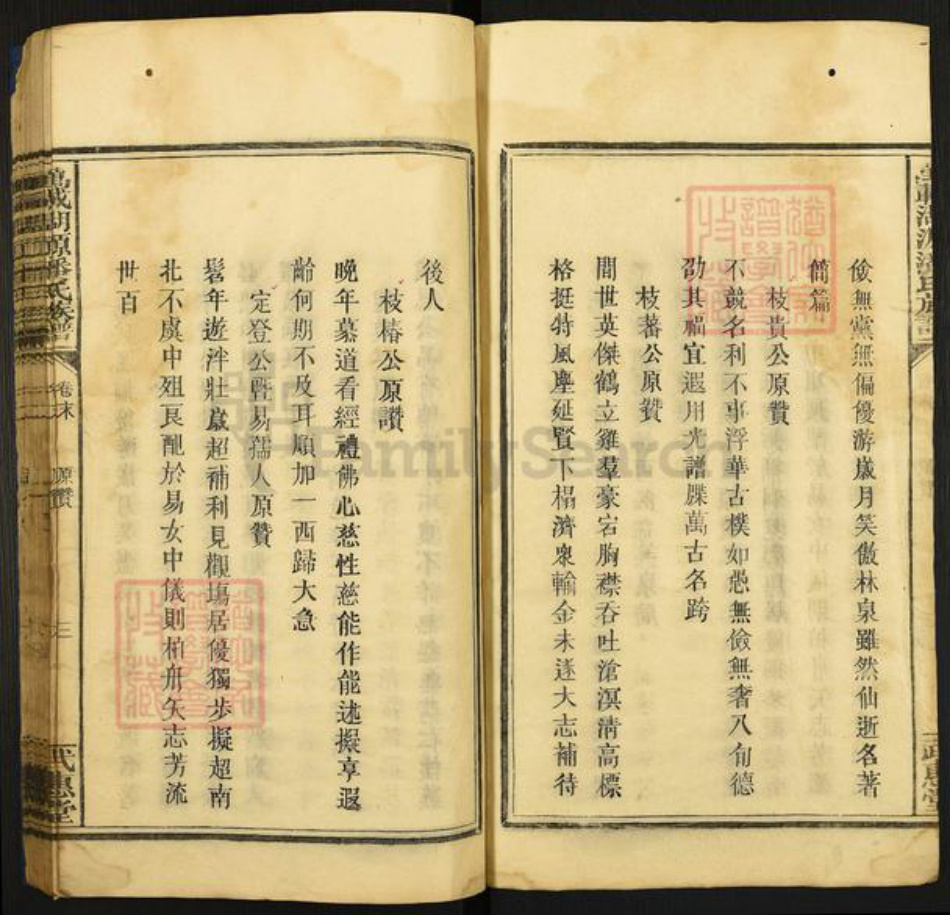 儉無黨無偏優游歲月笑傲林泉雖然仙逝名著
簡篇
枝貴公原贊
不競名利不事浮華古樸如愚無儉無奢八旬德
劭其福宜遐用光譜牒萬古名跨
枝蕃公原贊
間世英傑鶴立雞羣豪宕胸襟吞吐滄溟清高標
格挺特風塵延賢下榻濟衆輸金未遂大志補待
後人
枝椿公原讚
晚年慕道看經禮佛心慈性慈能作能述擬享遐
齡何期不及耳順加一西歸大急
定登公暨易孺人原贊
髫年遊泮壯歲超補利見觀塲居優獨步擬超南
北不虞中殂艮配於易女中儀則柏舟矢志芳流
世百
萬載湖源潘氏族譜
卷末
原讚
武惠堂
FamilySearch